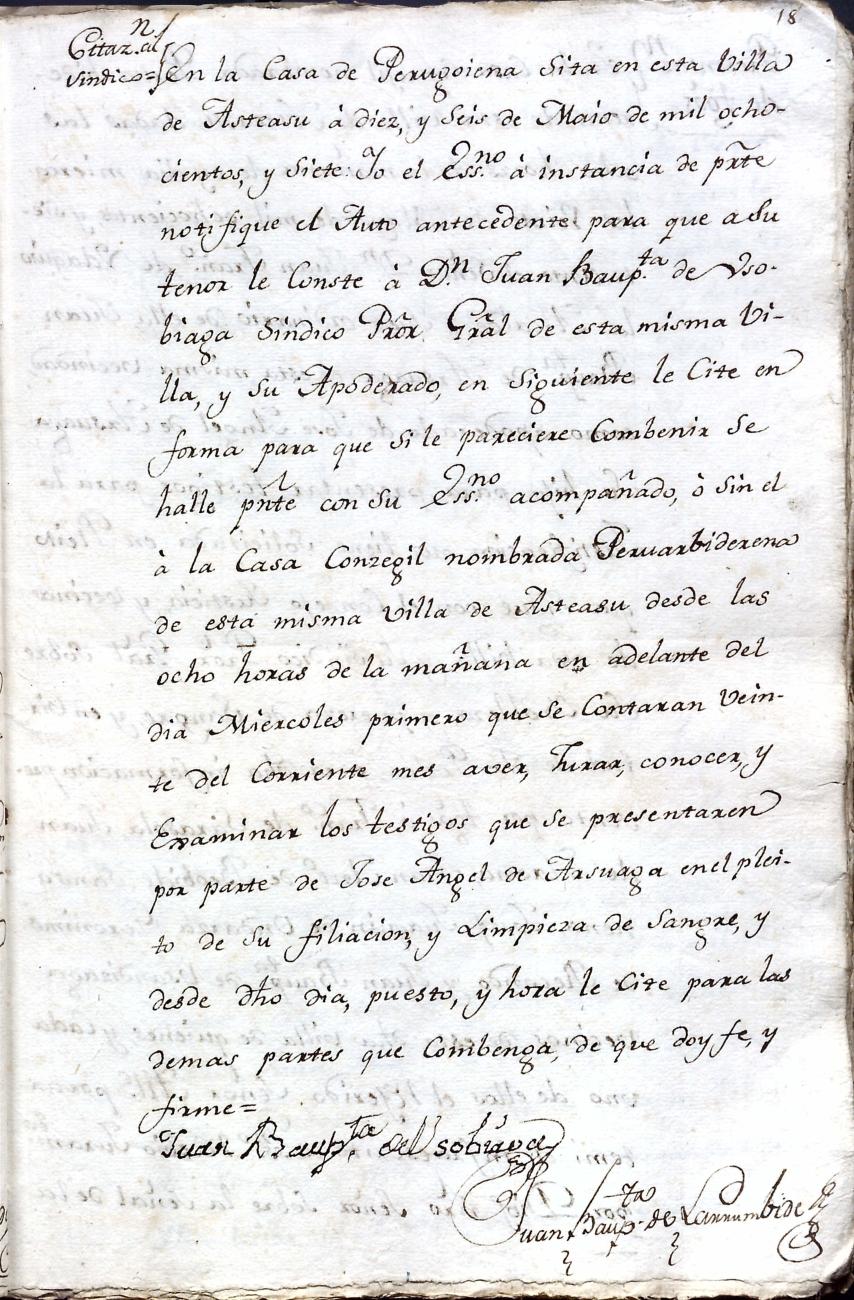 18
Citaz.n al
Sindico=
En la Casa de Perugoiena Sita en esta Villa
de Asteasu à diez, y Seis de Maio de mil ocho-
cientos, y Siete: Yo el Ess.no à instancia de prte
notifique el Auto antecedente para que a su
tenor le Conste à D.n Juan Baup.ta de Vso-
biaga Sindico Pror Gral de esta misma Vi-
lla, y su Apoderado, en Siguiente le Cite en
forma para que si le pareciere Combenir se
halle pnte con su Ess.no acompañado, ò sin el
à la Casa Conzegil nombrada Peruarbiderena
de esta misma Villa de Asteasu desde las
ocho horas de la mañana en adelante del
dia Miercoles primero que se Contaran vein-
te del Corriente mes aver, Jurar, conocer, y
Examinar los testigos que se presentaren
por parte de Jose Angel de Arsuaga en el plei-
to de su filiacion, y Limpieza de Sangre, y
desde dho dia, puesto, y hora le Cite para las
demas partes que Combenga, de que doy fe, y
firme=
Juan Baup.ta de Vsobiaga
Juan Baup.ta de Larrumbide